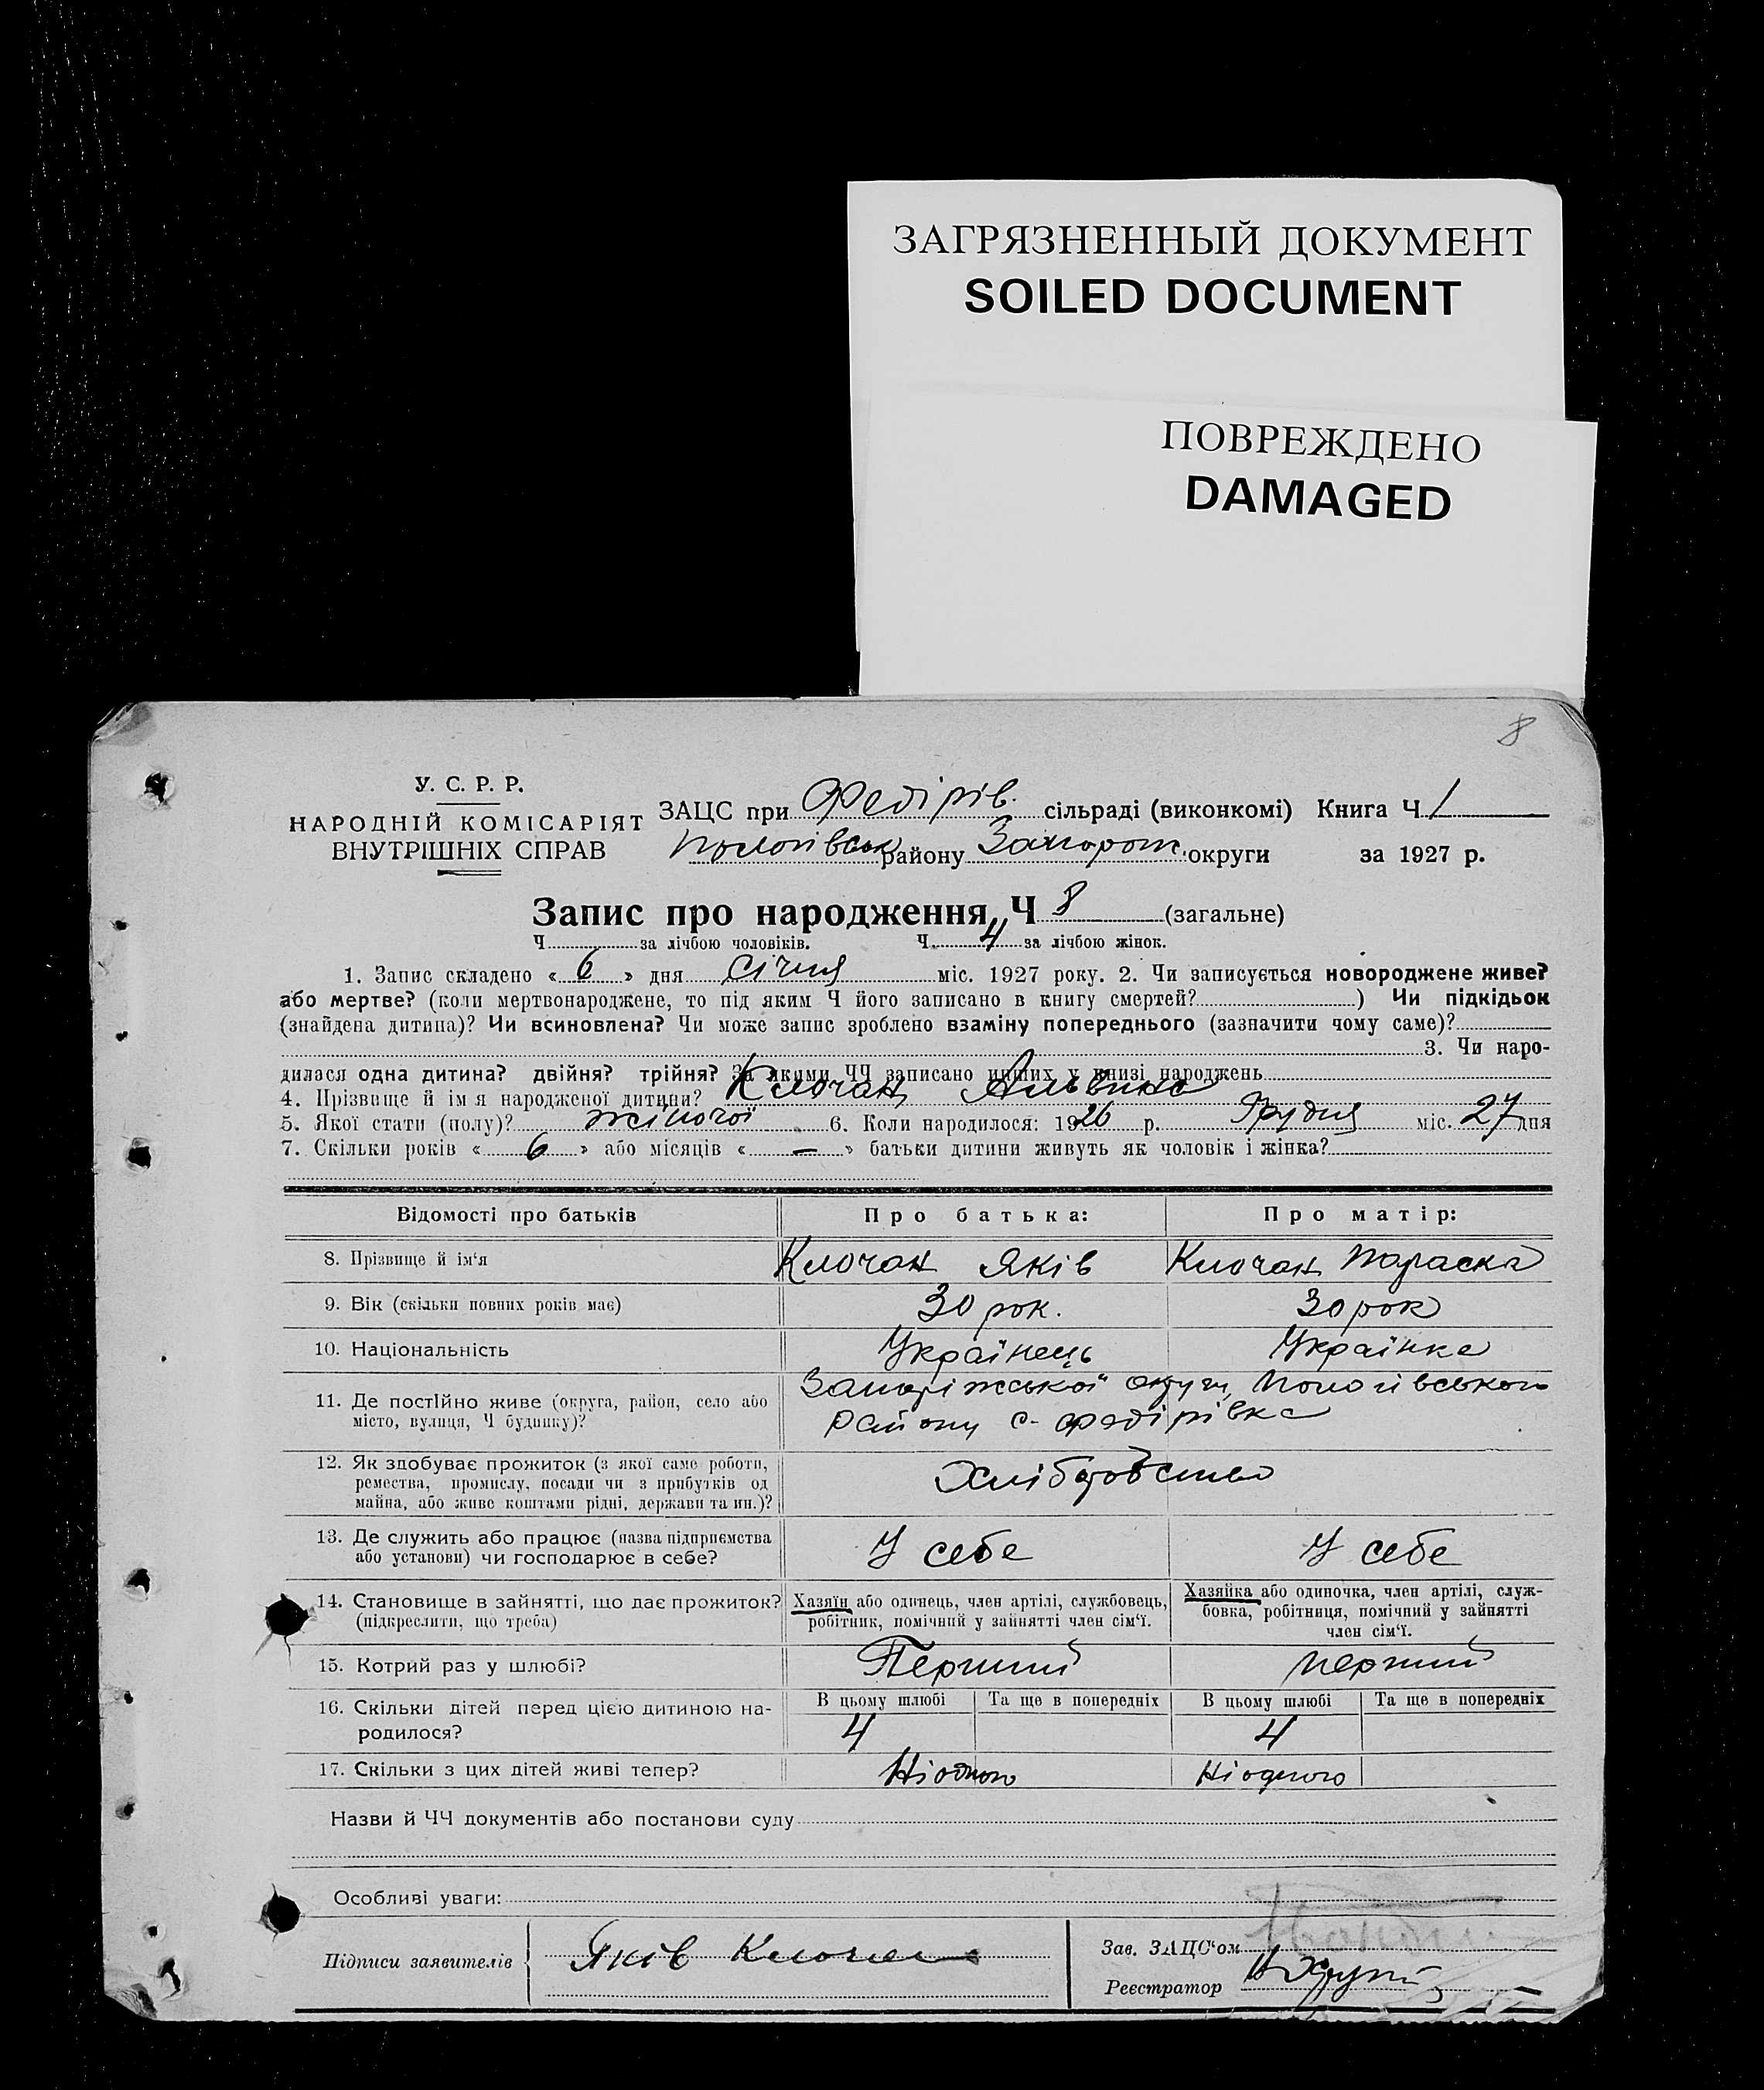 ЗАГРЯЗНЕННЫЙ ДОКУМЕНТ
SOILED DOCUMENT
ПОВРЕЖДЕНО
DAMAGED
8
У. С. Р. Р.
НАРОДНІЙ КОМІСАРІЯТ
ВНУТРІШНІХ СПРАВ
ЗАЦС при Федірів. сільраді (виконкомі) Книга Ч 1
Пологівськ району Запорож. округи за 1927 р.
Запис про народження Ч 8 (загальне)
Ч. за лічбою чоловіків. Ч. 4 за лічбою жінок.
1. Запис складено « 6 » дня січня міс. 1927 року. 2. Чи записується новороджене живе?
або мертве? (коли мертвонароджене, то під яким Ч його записано в книгу смертей? ) Чи підкідьок
(знайдена дитина)? Чи всиновлена? Чи може запис зроблено взаміну попереднього (зазначити чому саме)?
3. Чи наро-
дилася одна дитина? двійня? трійня? За якими ЧЧ записано инших у книзі народжень
4. Прізвище й ім'я народженої дитини? Клочан Альвина
5. Якої стати (полу)? жіночої 6. Коли народилося: 1926 р. Грудня міс. 27 дня
7. Скільки років « 6 » або місяців « — » батьки дитини живуть як чоловік і жінка?
Відомості про батьків Про батька: Про матір:
8. Прізвище й ім'я Клочан Яків Клочан Параска
9. Вік (скільки повних років має) 30 рок. 30 рок
10. Національність Українець Українка
11. Де постійно живе (округа, район, село або
місто, вулиця, Ч будинку)?
Запоріжської округи, Пологівського
району с. Федірівка
12. Як здобуває прожиток (з якої саме роботи,
ремества, промислу, посади чи з прибутків од
майна, або живе коштами рідні, держави та ин.)?
Хліборобство
13. Де служить або працює (назва підприємства
або установи) чи господарює в себе?
У себе У себе
14. Становище в зайнятті, що дає прожиток?
(підкреслити, що треба)
Хазяїн або одинець, член артілі, службовець,
робітник, помічний у зайнятті член сім'ї.
Хазяйка або одиночка, член артілі, служ-
бовка, робітниця, помічний у зайнятті
член сім'ї.
15. Котрий раз у шлюбі? Перший перший
16. Скільки дітей перед цією дитиною на-
родилося?
В цьому шлюбі Та ще в попередніх В цьому шлюбі Та ще в попередніх
4 4
17. Скільки з цих дітей живі тепер? Ніодного Ніодного
Назви й ЧЧ документів або постанови суду
Особливі уваги:
Підписи заявителів Яків Клочан
Зав. ЗАЦС'ом
Реєстратор